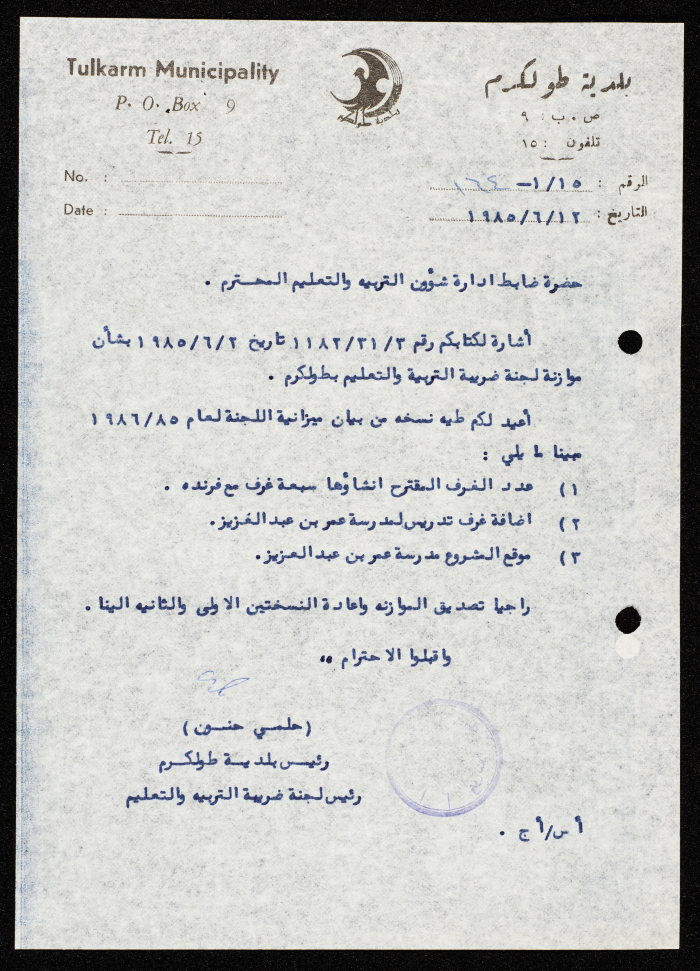 Tulkarm Municipality
P. O. Box 9
Tel. 15
بلدية طولكرم
ص . ب : ٩
تلفون : ١٥
No. :
Date :
الرقم : ١/١٥-
التاريخ : ١٩٨٥/٦/١٢
حضرة ضابط ادارة شؤون التربيه والتعليم المحترم .
أشارة لكتابكم رقم ١١٨٢/٣١/٣ تاريخ ١٩٨٥/٦/٢ بشأن
موازنة لجنة ضريبة التربية والتعليم بطولكرم .
أعيد لكم طيه نسخه من بيان ميزانية اللجنة لعام ١٩٨٦/٨٥
مبينا ما يلي :
١) عدد الغرف المقترح انشاؤها سبعة غرف مع فرنده .
٢) اضافة غرف تدريس لمدرسة عمر بن عبد العزيز.
٣) موقع المشروع مدرسة عمر بن عبد العزيز.
راجيا تصديق الموازنه واعادة النسختين الاولى والثانيه الينا .
واقبلوا الاحترام ،،
(حلمي حنون)
رئيس بلدية طولكرم
رئيس لجنة ضريبة التربيه والتعليم
أ س/أ ج .